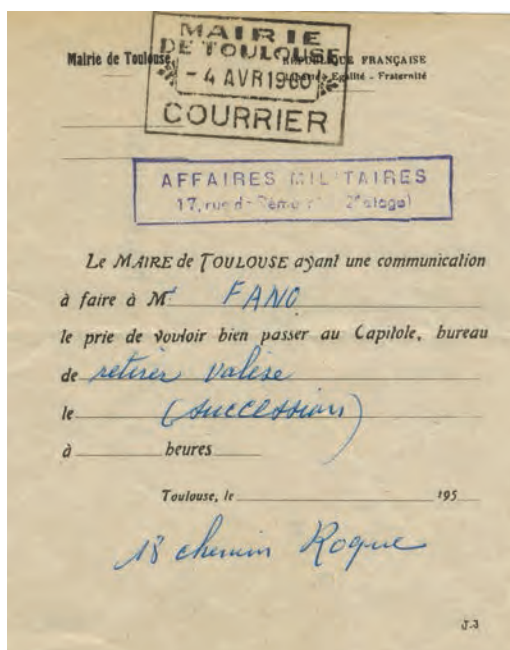 Mairie de Toulouse
RÉPUBLIQUE FRANÇAISE
Liberté - Egalité - Fraternité
MAIRIE
DE TOULOUSE
- 4 AVR 1960
COURRIER
AFFAIRES MILITAIRES
17, rue de (2e étage)
Le MAIRE de TOULOUSE ayant une communication
à faire à Mr FANO
le prie de vouloir bien passer au Capitole, bureau
de retirer valise
le (succession)
à heures
Toulouse, le 195
18 chemin Roque
J.3